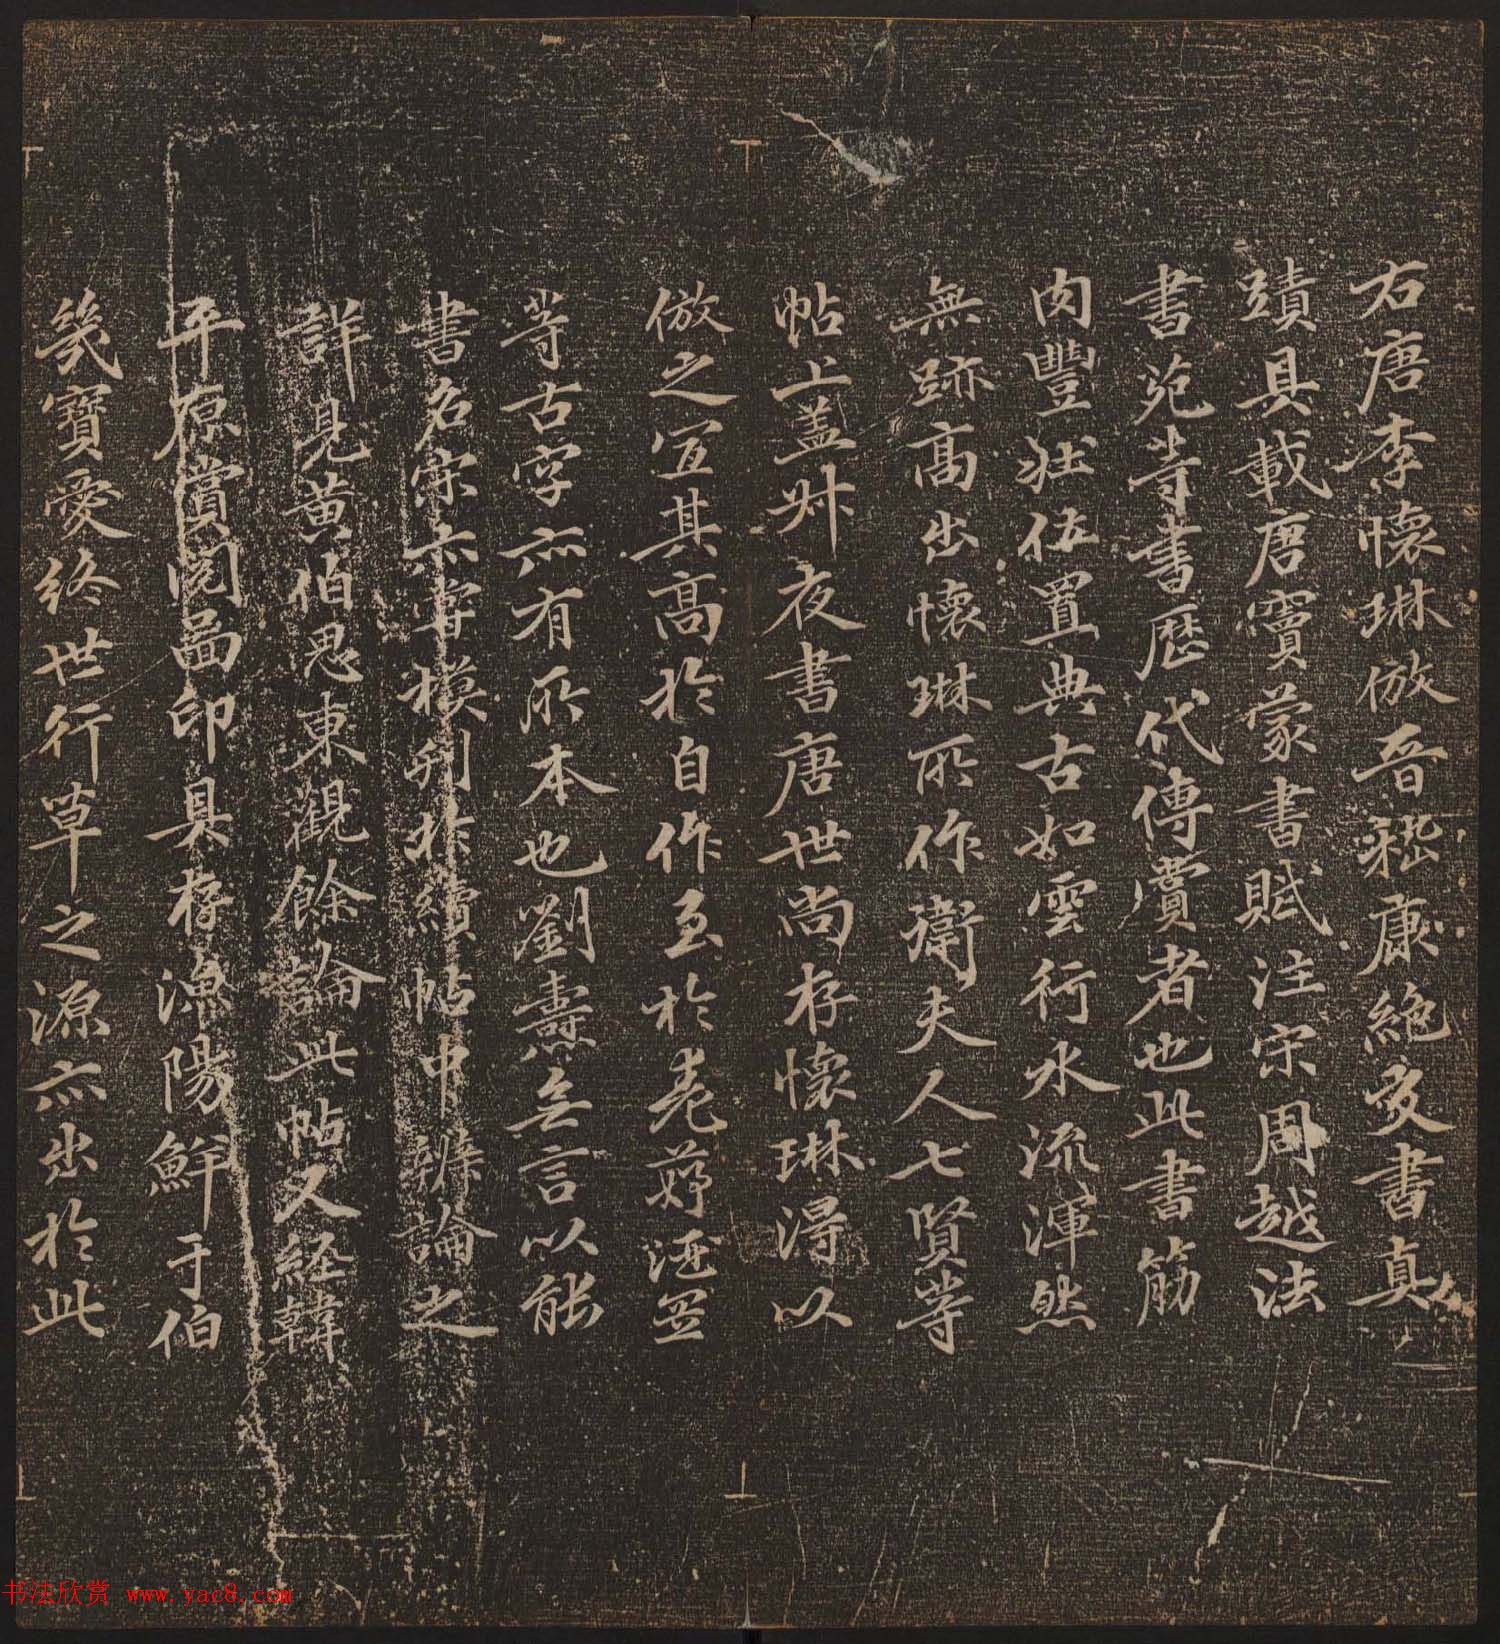 右唐李懷琳倣晉嵇康絶交書真
蹟具載唐竇蒙書賦注宋周越法
書苑等書歷代傳賞者也此書筋
肉豐壯位置典古如雲行水流渾然
無跡高出懷琳所作衛夫人七賢等
帖上盖叔夜書唐世尚存懷琳淂以
倣之宜其高於自作至於
等古字亦有所本也劉壽無言以能
書名宋亦嘗模刊於續帖中辨論之
詳見黄伯思東觀餘論此帖又經韓
平原賞閲啚印具存漁陽鮮于伯
幾寶愛終世行草之源亦出於此
书法欣赏 www.yac8.com